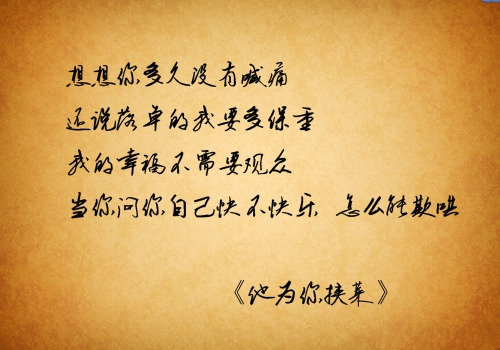 想想你多久没有喊痛
还说落单的我要多保重
我的幸福不需要观众
当你问你自己快不快乐 怎么能欺哄
《他为你挟菜》